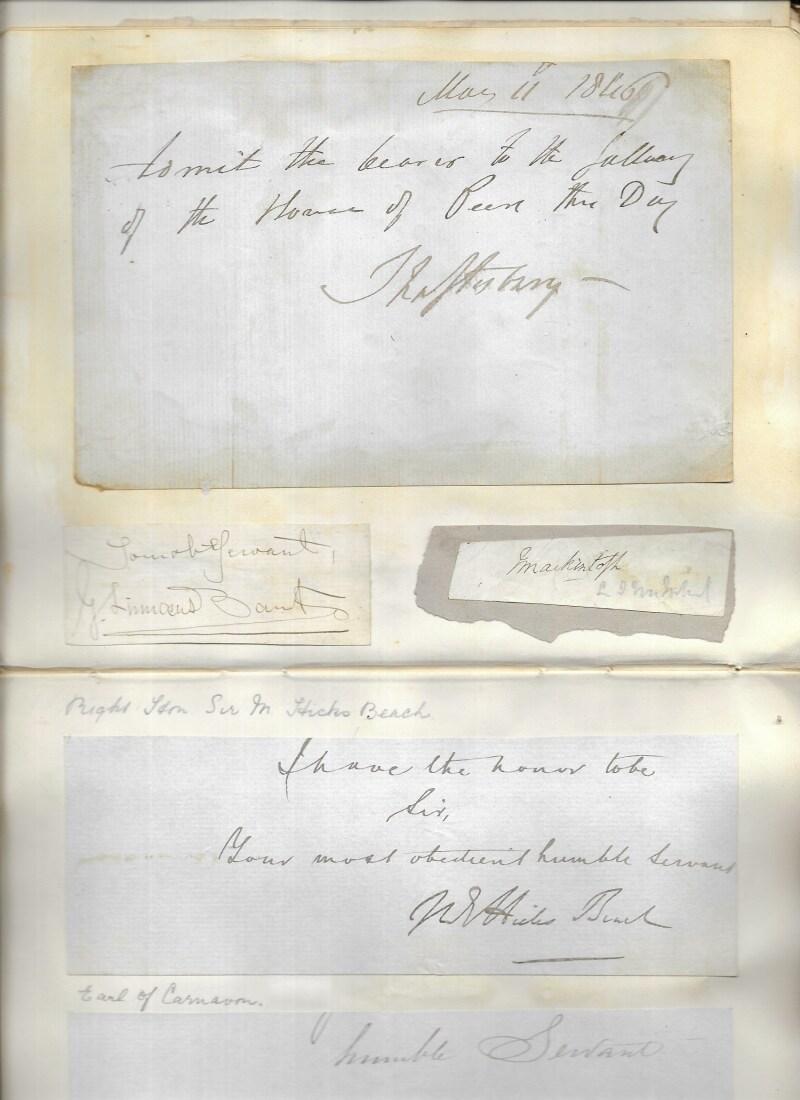 May 11 1846
Admit the bearer to the Gallery
of the House of Peers this Day
Shaftesbury —
Your obt Servant,
G. Linnaeus Banks
Mackintosh
Right Hon Sir M Hicks Beach
I have the honor to be
Sir,
Your most obedient humble servant
M E Hicks Beach
Earl of Carnavon.
humble Servant